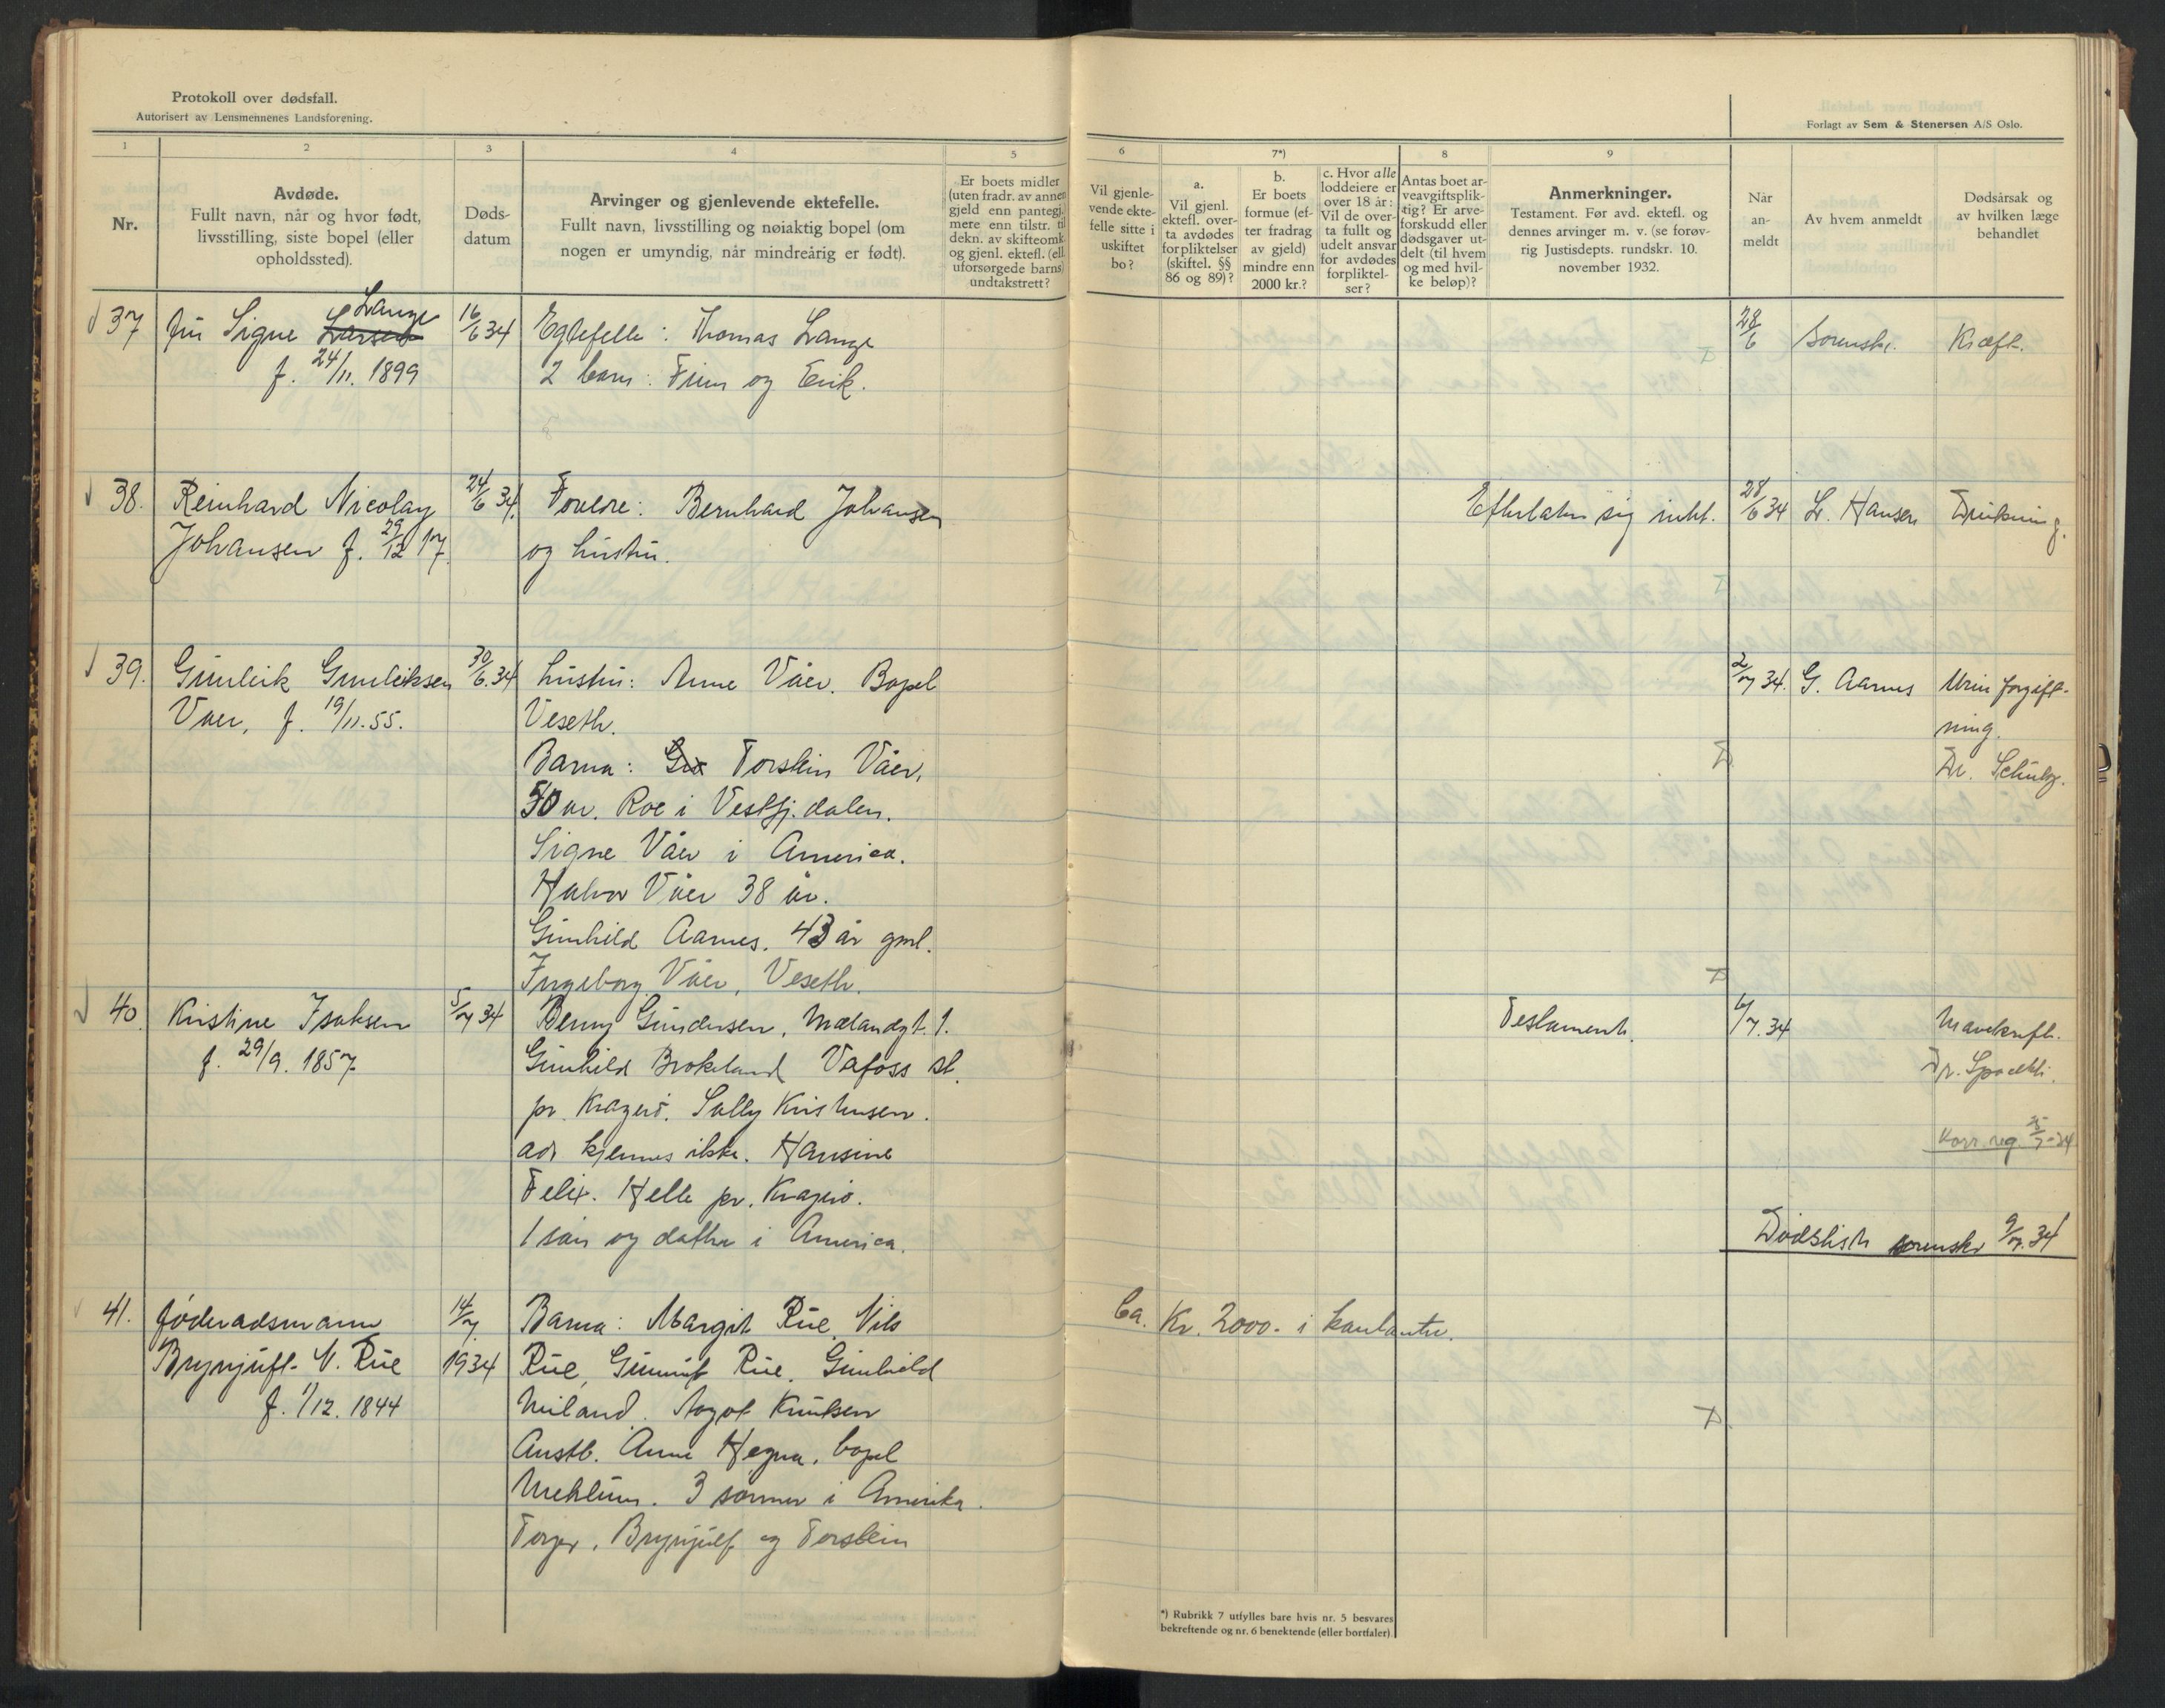 Protokoll over dødsfall.
Autorisert av Lensmennenes Landsforening.
Forlagt av Sem & Stenersen A/S Oslo.
1
2
3
4
5
6
7*)
8
9
Nr.
Avdøde.
Fullt navn, når og hvor født,
livsstilling, siste bopel (eller
opholdssted).
Døds-
datum
Arvinger og gjenlevende ektefelle.
Fullt navn, livsstilling og nøiaktig bopel (om
nogen er umyndig, når mindreårig er født).
Er boets midler
(uten fradr. av annen
gjeld enn pantegj.)
mere enn tilstr. til
dekn. av skifteomk.
og gjenl. ektefl. (ell.
uforsørgede barns)
undtakstrett?
Vil gjenle-
vende ekte-
felle sitte i
uskiftet
bo?
a.
Vil gjenl.
ektefl. over-
ta avdødes
forpliktelser
(skiftel. §§
86 og 89)?
b.
Er boets
formue (ef-
ter fradrag
av gjeld)
mindre enn
2000 kr.?
c. Hvor alle
loddeiere er
over 18 år:
Vil de over-
ta fullt og
udelt ansvar
for avdødes
forpliktel-
ser?
Antas boet ar-
veavgiftsplik-
tig? Er arve-
forskudd eller
dødsgaver ut-
delt (til hvem
og med hvil-
ke beløp)?
Anmerkninger.
Testament. Før avd. ektefl. og
dennes arvinger m. v. (se forøv-
rig Justisdepts. rundskr. 10.
november 1932.
Når
an-
meldt
Av hvem anmeldt
Dødsårsak og
av hvilken læge
behandlet
37 fru Signe Larsen Lange 16/6 34 Egtefelle: Thomas Lange 28/6 Sorenskr. Kræft.
f. 24/11. 1899 2 barn: Finn og Erik.
38. Reinhard Nicolay 24/6 34. Foreldre: Bernhard Johansen Efterlater sig intet. 28/6 34 L. Hansen Drukning.
Johansen f. 29/12 17. og hustru.
39. Gunleik Gunleiksen 30/6. 34 hustru: Anne Våer. Bopel 2/7 34. G. Aarnes Urin forgift-
Vaer, f. 19/11. 55. Veseth. ning.
Barna: Torstein Våer, Dr. Schulz.
50 år. Roe i Vestfj. dalen.
Signe Våer i America.
Halvor Våer 38 år.
Gunhild Aarnes. 43 år gml.
Ingeborg Våer, Veseth.
40. Kristine Isaksen 5/7 34 Benny Gundersen, Mælandgt. 1. Testament. 6/7. 34 Mavekreft.
f. 29/9. 1857 Gunhild Brokeland Vafoss st. Dr.
pr. Kragerø. Sally Kristensen.
adr kjennes ikke. Hansine Korr. reg. 5/7-34
Felix. Helle pr. Kragerø.
1 søn og datter i America. Dødsliste sorenskr 9/7. 34
41. føderadsmann 14/7. Barna: Margit Rue, Nils Ca. Kr. 2000.- i kontanter.
Brynjulf N. Rue 1934 Rue, Rue, Gunhild
f. 1/12. 1844 Miland. Aagot Knutsen
Austb. Anne Hegna, bopel
Mehlum. 3 sønner i Amerika.
Torger, Brynjulf og Torstein
*) Rubrikk 7 utfylles bare hvis nr. 5 besvares
bekreftende og nr. 6 benektende (eller bortfaller).